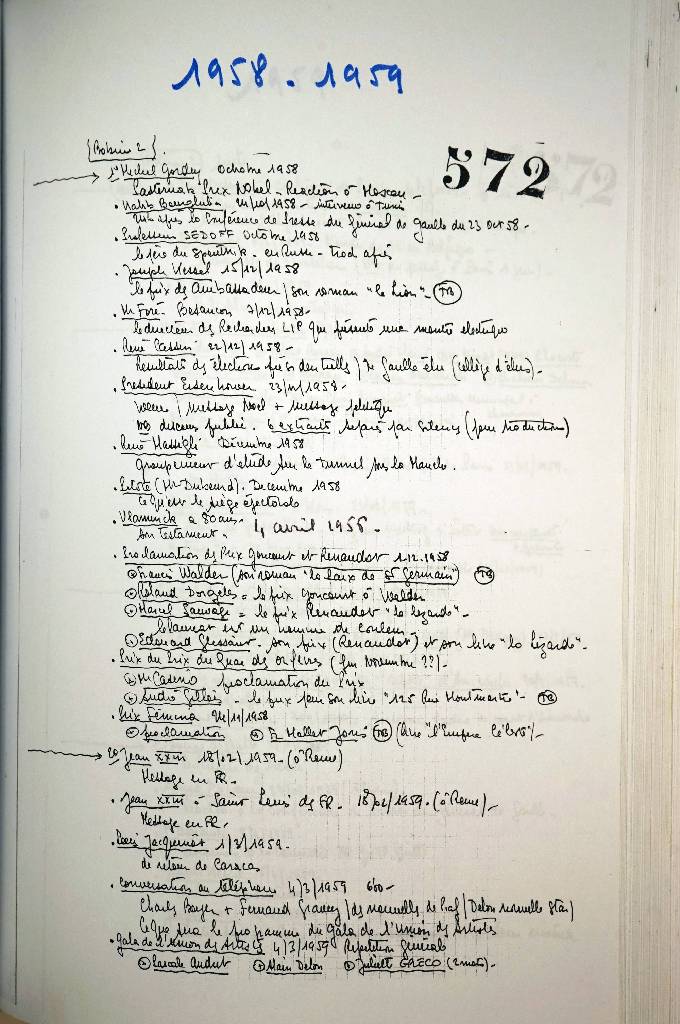 1958 - 1959
572
[Bobine 2].
1° Michel Gordey Octobre 1958
Pasternak Prix Nobel - Réaction à Moscou -
. Habib Bourguiba 24/10/1958 - interview à Tunis
24h après la Conférence de Presse du Général de Gaulle du 23 Oct 58 -
. Professeur SEDOFF Octobre 1958
le père du Spoutnik - en Russe - trad après
. Joseph Kessel 15/12/1958
le prix des Ambassadeurs / son roman "le Lion" - TB
. Mr Foré. Besançon 7/12/1958 -
le directeur des Recherches LIP qui présente une montre électrique
. René Cassin 22/12/1958 -
Résultats des élections présidentielles / De Gaulle élu (collège d'élus) -
. Président Eisenhower 23/12/1958 -
voeux / message Noël + message politique
discours publié. 6 extraits séparés par silences (pour traduction)
. René Massigli Décembre 1958
groupement d'étude sur le Tunnel sous la Manche.
. Pilote (Mr Dubourd). Décembre 1958
ce qu'est le siège éjectable
. Vlaminck a 80 ans - 4 avril 1956.
Son testament.
. Proclamation des Prix Goncourt et Renaudot 1.12.1958
Francis Walder (son roman "la Paix de St Germain") TB
Roland Dorgelès = le prix Goncourt à Walder
Marcel Sauvage = le prix Renaudot "le lézarde" -
le lauréat est un homme de couleur
Edouard Glissant - son prix (Renaudot) et son livre "la lézarde" -
. Prix du Prix du Quai des Orfèvres (fin Novembre ??) -
Mr Casino proclamation du Prix
André Gillois - le prix pour son livre "125 Rue Montmartre" - TB
. Prix Fémina 24/11/1958
proclamation F. Mallet Joris TB (livre "l'Empire Céleste") -
2° Jean XXIII 18/02/1959 - (à Rome)
Message en FR.
. Jean XXIII à Saint Louis des FR - 18/02/1959 - (à Rome) -
Message en FR.
. Louis Jacquinot 1/3/1959 -
de retour de Caracas
. Conversation au téléphone 4/3/1959
Charles Boyer + Fernand Gravey / des nouvelles de Piaf / Delon nouvelle star)
Ce que sera le programme du gala de l'Union des Artistes
. Gala de l'Union des Artistes 4/3/1959 Répétition Générale
Pascale Audret Alain Delon Juliette GRECO (2 mots) -